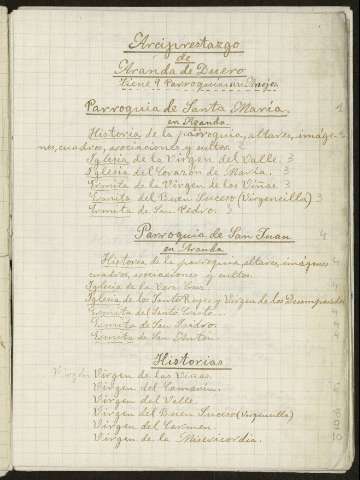 Arciprestazgo
de
Aranda de Duero
Tiene 9 Parroquias
Parroquia de Santa María
en Aranda
Historia de la parroquia, altares, imáge-
nes, cuadros, asociaciones y cultos. 2
Iglesia de la Virgen del Valle. 3
Iglesia del Corazón de María. 3
Ermita de la Virgen de las Viñas. 3
Ermita del Buen Suceso (Virgencilla) 3
Ermita de San Pedro. 3
Parroquia de San Juan 4
en Aranda
Historia de la parroquia, altares, imágenes
cuadros, asociaciones y cultos. 4
Iglesia de la Vera Cruz. 4
Iglesia de los Santos Reyes y Virgen de los Desamparados
Ermita del Santo Cristo. 4
Ermita de San Isidro. 4
Ermita de San Antón. 4
Historias
Virgen de las Viñas.
Virgen del Camarín.
Virgen del Valle.
Virgen del Buen Suceso (Virgencilla) 8
Virgen del Carmen. 9
Virgen de la Misericordia. 10